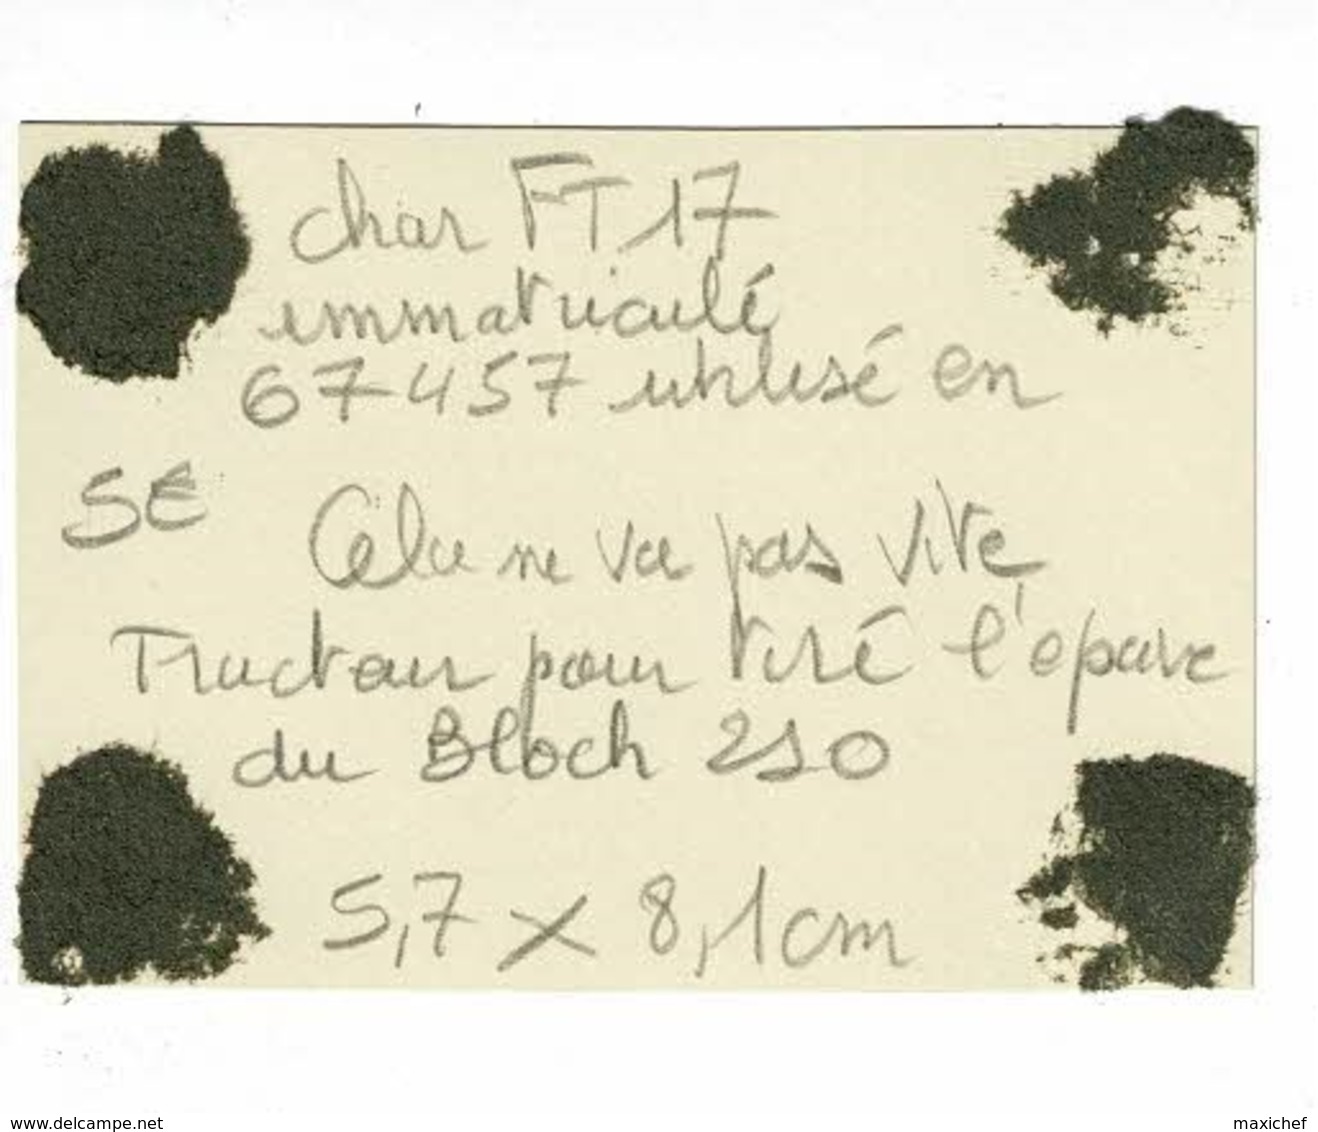 char FT 17
immatriculé
67457 utilisé en
SE Cela ne va pas vite,
Tracteur pour tiré l'epave
du Bloch 210
5,7 x 8,1cm
www.delcampe.net
maxichef